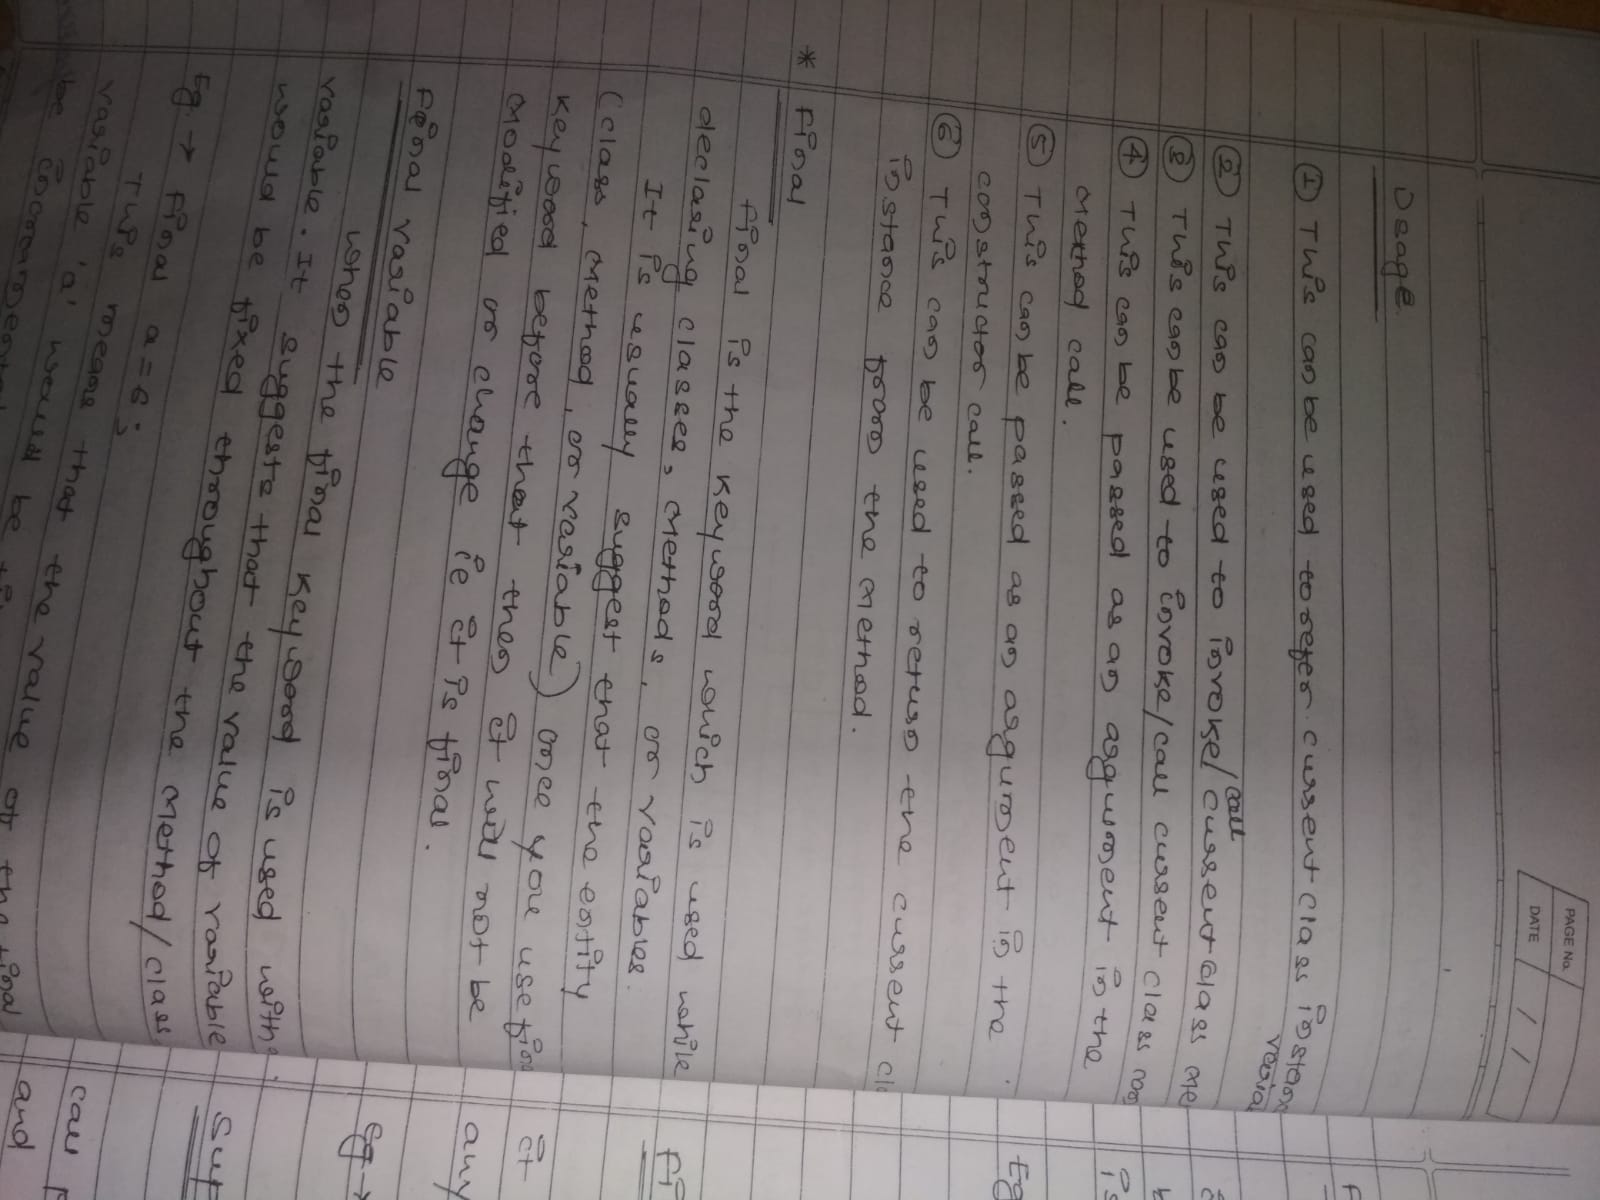 PAGE No.
DATE / /
Usage
① This can be used to refer current class instan
variab
② This can be used to invoke/call current class me
③ This can be used to invoke/call current class con
④ This can be passed as an argument in the
method call.
⑤ This can be passed as an argument in the
constructor call.
⑥ This can be used to return the current cl
instance from the method.
* Final
final is the keyword which is used while
declaring classes, methods, or variables.
It is usually suggest that the entity
(class, method, or variable) once you use fina
keyword before that then it will not be
modified or change ie it is final.
Final variable
when the final keyword is used with
variable. It suggests that the value of variable
would be fixed throughout the method/class
Eg. → final a = 6;
This means that the value
variable 'a' would be
be the value of the final
Eg
Fi
it
any
Eg →
Sup
call
and